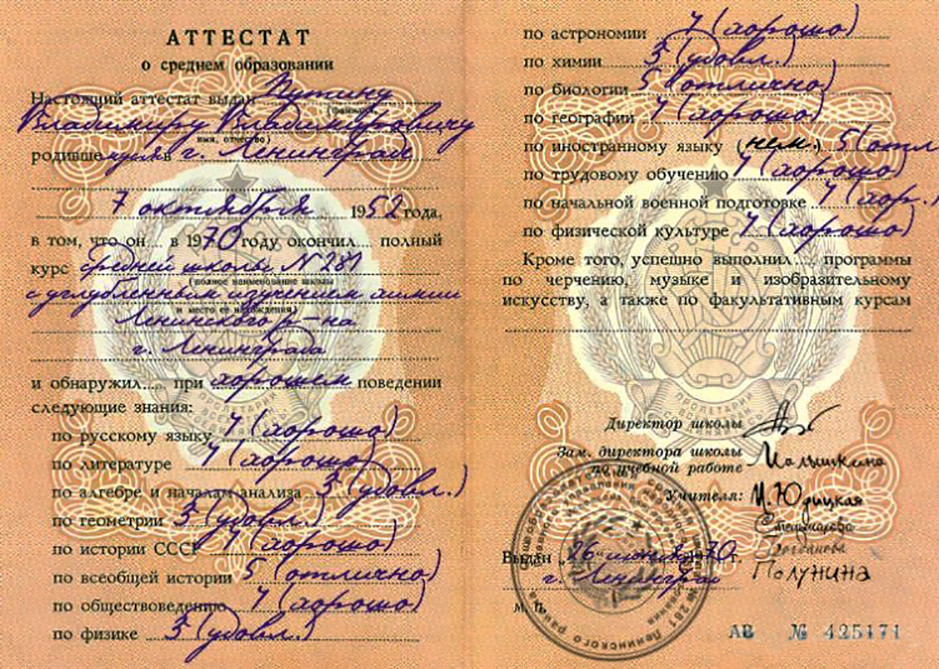 АТТЕСТАТ
о среднем образовании
Настоящий аттестат выдан Путину
(фамилия,
Владимиру Владимировичу
имя, отчество)
родившемуся в г. Ленинграде
7 октября 1952 года,
в том, что он ... в 1970 году окончил ... полный
курс средней школы N 281
(полное наименование школы
с углубленным изучением химии
и место ее нахождения)
Ленинского р-на
г. Ленинграда
и обнаружил ... при хорошем поведении
следующие знания:
по русскому языку 4 (хорошо)
по литературе 4 (хорошо)
по алгебре и началам анализа 3 (удовл.)
по геометрии 3 (удовл.)
по истории СССР 4 (хорошо)
по всеобщей истории 5 (отлично)
по обществоведению 4 (хорошо)
по физике 3 (удовл.)
по астрономии 4 (хорошо)
по химии 3 (удовл.)
по биологии 5 (отлично)
по географии 4 (хорошо)
по иностранному языку (нем.) 5 (отл
по трудовому обучению 4 (хорошо)
по начальной военной подготовке 4 (хор.)
по физической культуре 4 (хорошо)
Кроме того, успешно выполнил .... программы
по черчению, музыке и изобразительному
искусству, а также по факультативным курсам
Директор школы
Зам. директора школы
по учебной работе Малышкина
Учителя: И. Юдицкая
Богданова
Полунина
Выдан „26" июня 1970 г.
г. Ленинград
М. П.
АВ № 425171